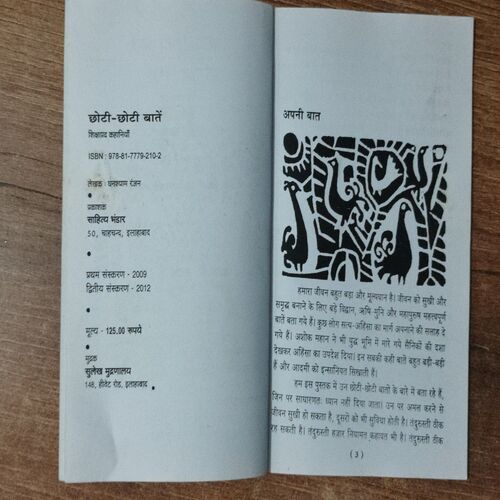 छोटी-छोटी बातें
शिक्षाप्रद कहानियाँ
ISBN : 978-81-7779-210-2
लेखक : घनश्याम रंजन
प्रकाशक
साहित्य भंडार
50, चाहचन्द, इलाहाबाद
प्रथम संस्करण - 2009
द्वितीय संस्करण - 2012
मूल्य - 125.00 रुपये
मुद्रक
सुलेख मुद्रणालय
148, हीवेट रोड, इलाहाबाद
अपनी बात
हमारा जीवन बहुत बड़ा और मूल्यवान है। जीवन को सुखी और
समृद्ध बनाने के लिए बड़े विद्वान, ऋषि मुनि और महापुरुष महत्वपूर्ण
बातें बता गये हैं। कुछ लोग सत्य-अहिंसा का मार्ग अपनाने की सलाह दे
गये हैं। अशोक महान ने भी युद्ध भूमि में मारे गये सैनिकों की दशा
देखकर अहिंसा का उपदेश दिया। इन सबकी कही बातें बहुत बड़ी-बड़ी
हैं और आदमी को इन्सानियत सिखाती हैं।
हम इस पुस्तक में उन छोटी-छोटी बातों के बारे में बता रहे हैं,
जिन पर साधारणतः ध्यान नहीं दिया जाता। उन पर अमल करने से
जीवन सुखी हो सकता है, दूसरों को भी सुविधा होती है। तंदुरुस्ती ठीक
रह सकती है। तंदुरुस्ती हजार नियामत कहावत भी है। तंदुरुस्ती ठीक
( 3 )